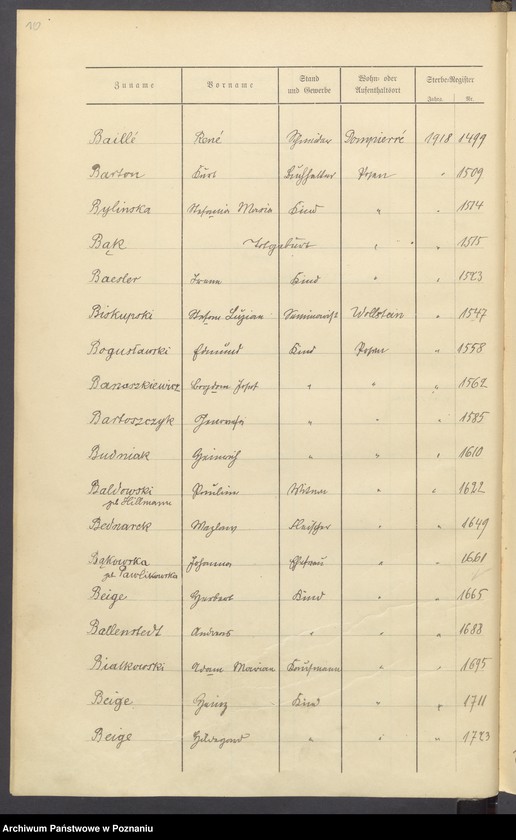 10
Zuname Vorname Stand und Gewerbe Wohn- oder Aufenthaltsort Sterbe-Register
Jahrg. Nr.
Baillé René Schneider Dompierré 1918 1499
Barton Kurt Buchhalter Posen " 1509
Bylinska Stefania Maria Kind " " 1514
Bąk Totgeburt " " 1515
Baesler Irene Kind " " 1523
Biskupski Stefan Luzian Seminarist Wollstein " 1547
Bogusławski Edmund Kind Posen " 1558
Banaszkiewicz Bogdan Josef " " " 1562
Bartoszczyk " " " 1585
Budniak Heinrich " " " 1610
Baldowski Pauline Witwe " " 1622
gb Hillmann
Bednarek Wazlaw Fleischer " " 1649
Bąkowska Johanna Ehefrau " " 1661
gb Pawlikowska
Beige Herbert Kind " " 1665
Ballenstedt Andreas " " " 1688
Bialkowski Adam Marian Kaufmann " " 1695
Beige Heinz Kind " " 1711
Beige Hildegard " " " 1723
Archiwum Państwowe w Poznaniu